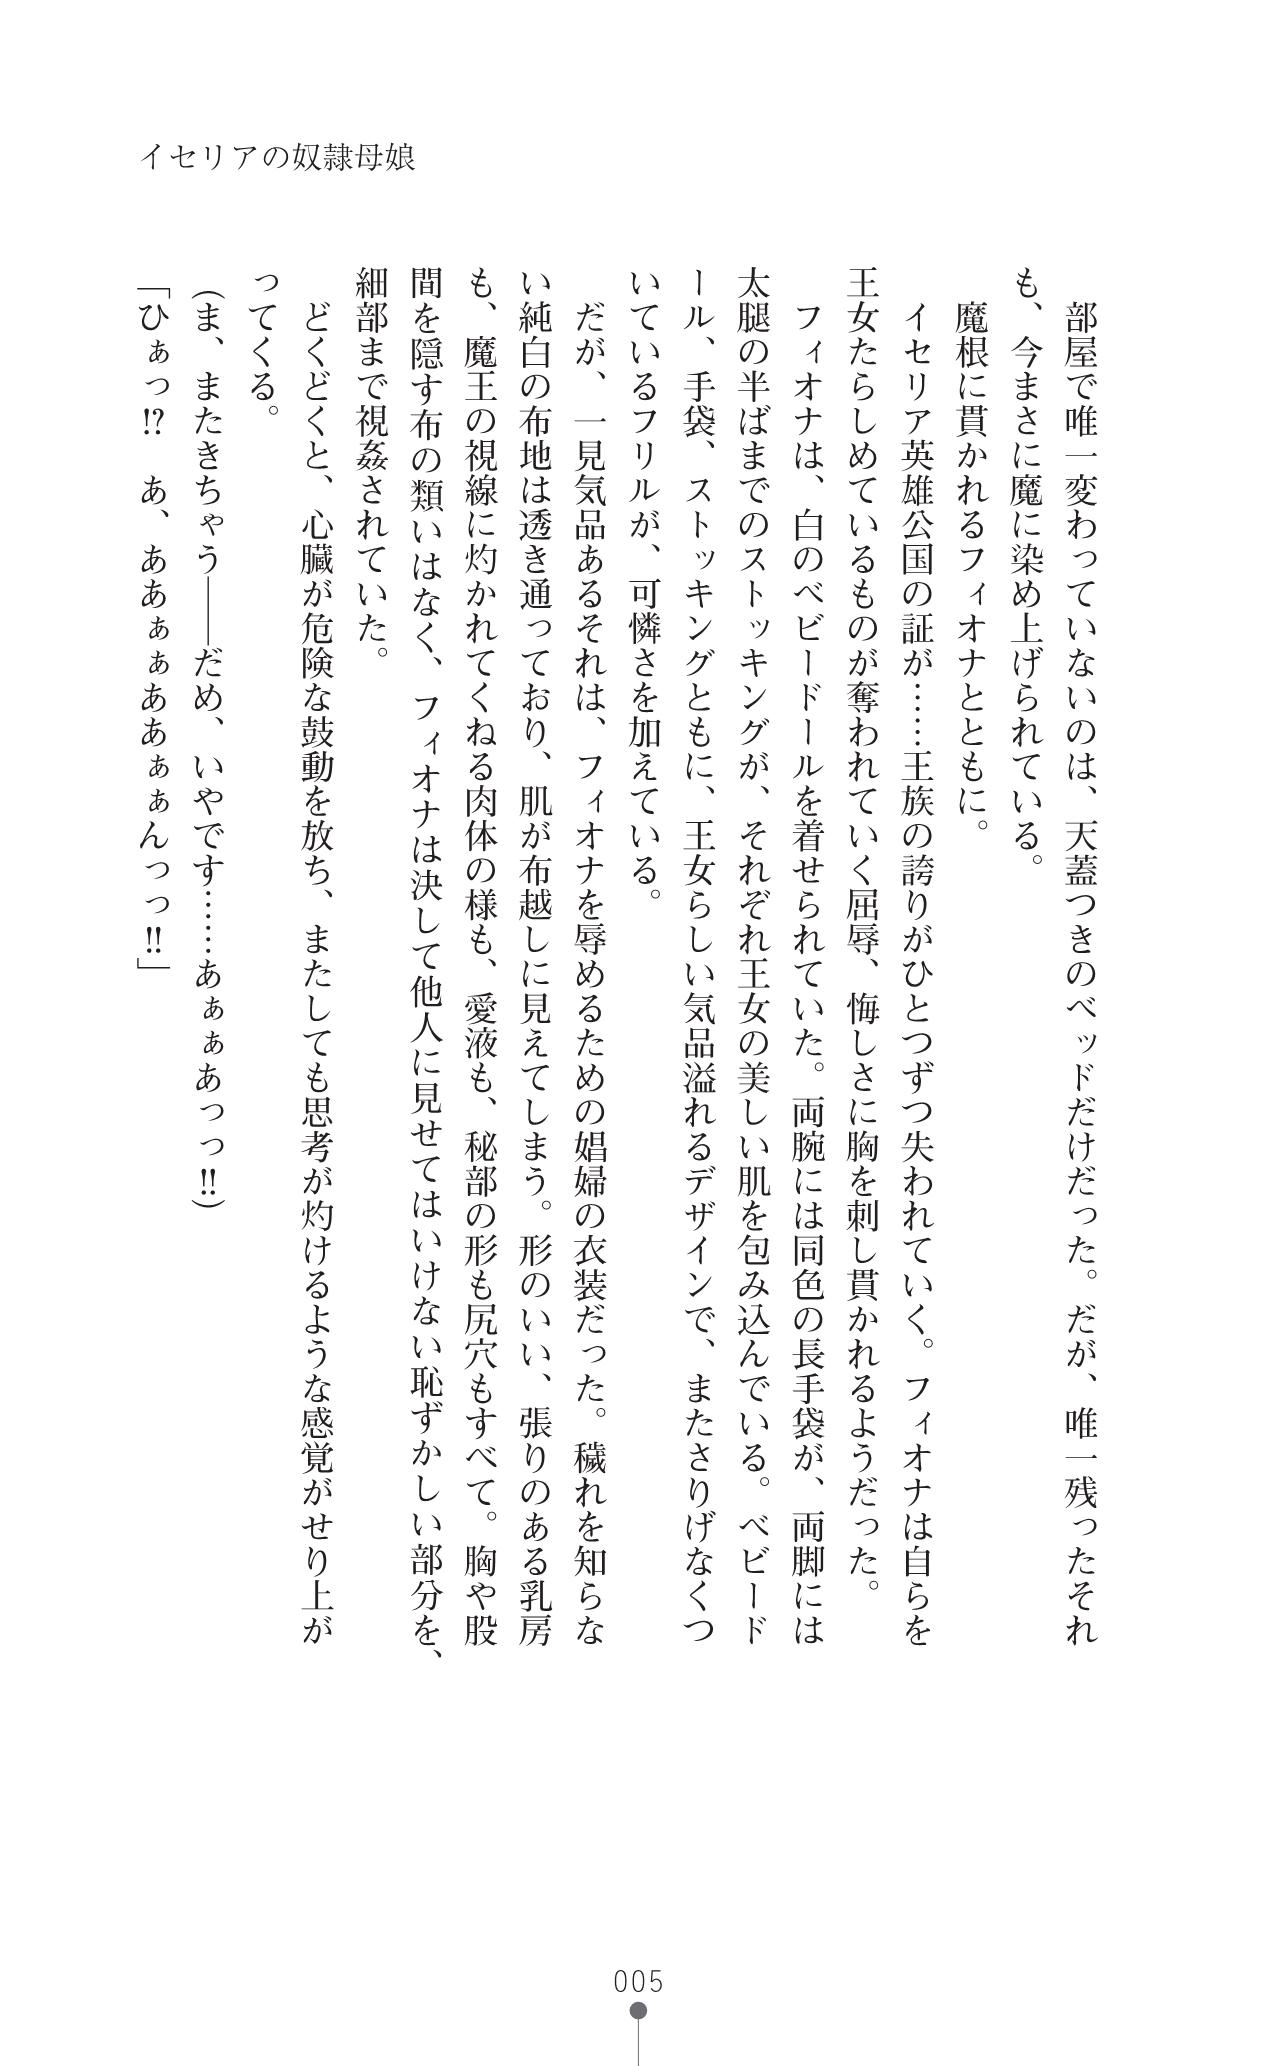 イセリアの奴隷母娘
部屋で唯一変わっていないのは、天蓋つきのベッドだけだった。だが、唯一残ったそれ
も、今まさに魔に染め上げられている。
魔根に貫かれるフィオナとともに。
イセリア英雄公国の証が……王族の誇りがひとつずつ失われていく。フィオナは自らを
王女たらしめているものが奪われていく屈辱、悔しさに胸を刺し貫かれるようだった。
フィオナは、白のベビードールを着せられていた。両腕には同色の長手袋が、両脚には
太腿の半ばまでのストッキングが、それぞれ王女の美しい肌を包み込んでいる。ベビード
ール、手袋、ストッキングともに、王女らしい気品溢れるデザインで、またさりげなくつ
いているフリルが、可憐さを加えている。
だが、一見気品あるそれは、フィオナを辱めるための娼婦の衣装だった。穢れを知らな
い純白の布地は透き通っており、肌が布越しに見えてしまう。形のいい、張りのある乳房
も、魔王の視線に灼かれてくねる肉体の様も、愛液も、秘部の形も尻穴もすべて。胸や股
間を隠す布の類いはなく、フィオナは決して他人に見せてはいけない恥ずかしい部分を、
細部まで視姦されていた。
どくどくと、心臓が危険な鼓動を放ち、またしても思考が灼けるような感覚がせり上が
ってくる。
(ま、またきちゃう――だめ、いやです……あぁぁあっっ!!)
「ひぁっ!?　あ、ああぁぁああぁぁんっっ!!」
005